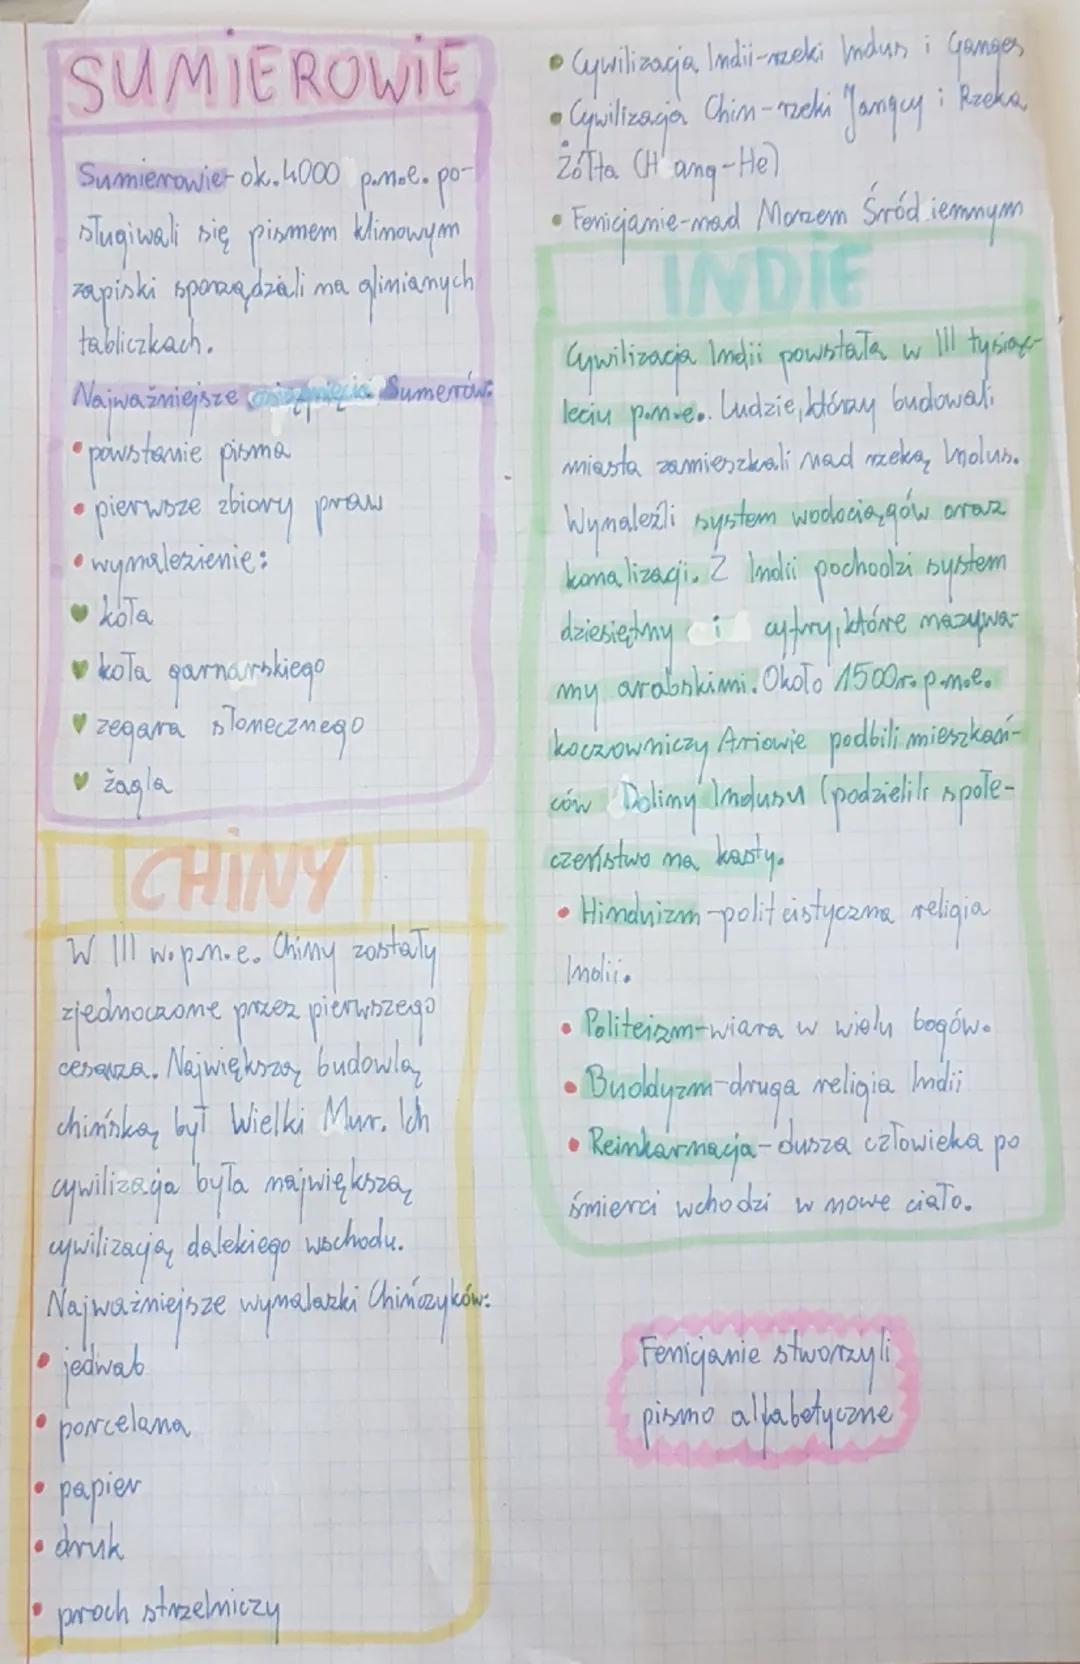 SUMIEROWIE
Sumierowie- ok. 4000 p.n.e. po-
sługiwali się pismem klinowym
zapiski sporządzali na glinianych
tabliczkach.
Najważniejsze osiągnięcia Sumerów:
• powstanie pisma
• pierwsze zbiory praw
• wynalezienie:
♥ koła
♥ koła garnarskiego
♥ zegara słonecznego
♥ żagla
CHINY
W III w.p.n.e. Chiny zostały
zjednoczone przez pierwszego
cesarza. Największą budowlą
chińską był Wielki Mur. Ich
cywilizacja była największą
cywilizacją dalekiego wschodu.
Najważniejsze wynalazki Chińczyków:
• jedwab
• porcelana
• papier
• druk
• proch strzelniczy
• Cywilizacja Indii-rzeki Indus i Ganges
• Cywilizacja Chin-rzeki Jangcy i Rzeka
Żółta (H ang-He)
• Fenicjanie-nad Morzem Śród iemnym
INDIE
Cywilizacja Indii powstała w III tysiąc-
leciu p.n.e.. Ludzie, którzy budowali
miasta zamieszkali nad rzeką Indus.
Wynaleźli system wodociągów oraz
kanalizacji. Z Indii pochodzi system
dziesiętny i cyfry, które nazywa-
my arabskimi. Około 1500r. p.n.e.
koczowniczy Ariowie podbili mieszkań-
ców Doliny Indusu (podzielili społe-
czeństwo na kasty.
• Hinduizm-politeistyczna religia
Indii.
• Politeizm-wiara w wielu bogów.
• Buddyzm-druga religia Indii
• Reinkarnacja-dusza człowieka po
śmierci wchodzi w nowe ciało.
Fenicjanie stworzyli
pismo alfabetyczne